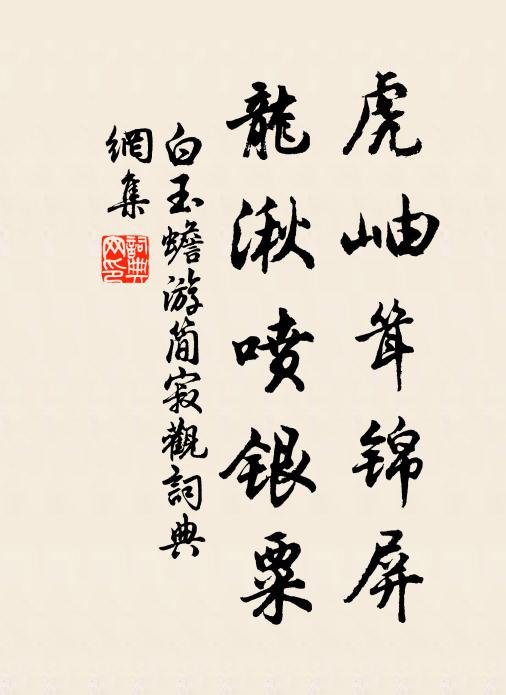 虎岫耸锦屏
龍湫喷银粟
白玉蟾游简寂觀詞典
網集
詞典
网印